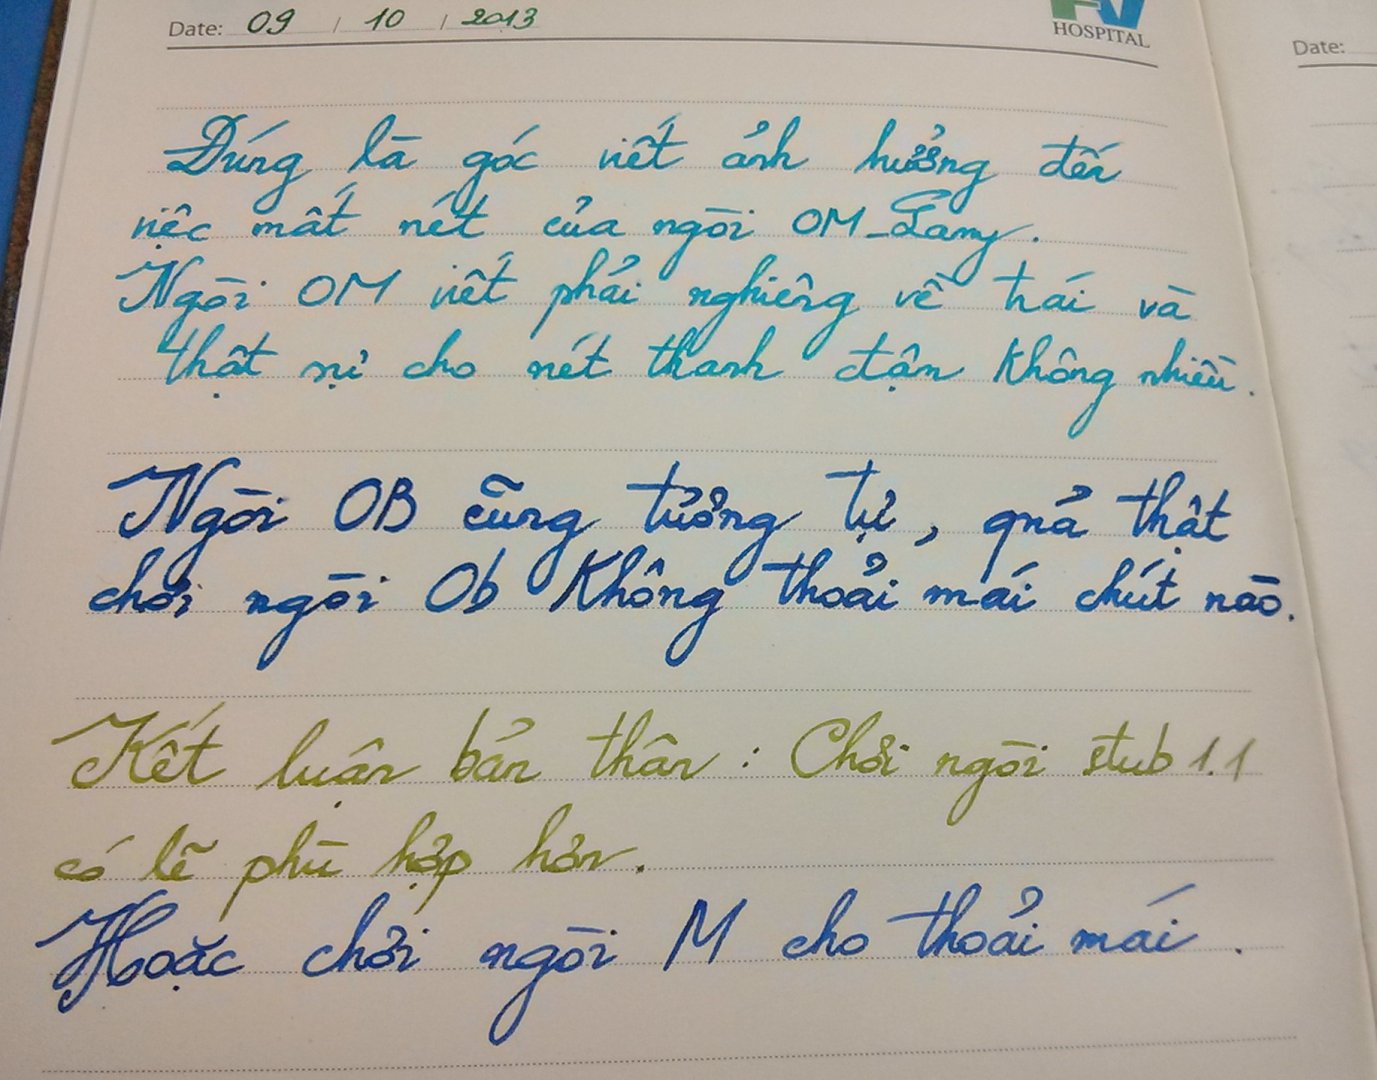 Date: 09 / 10 / 2013
FV HOSPITAL
Date:
Đúng là góc viết ảnh hưởng đến
việc mất nét của ngòi OM_Lamy.
Ngòi OM viết phải nghiêng về trái và
thật sự cho nét thanh đậm không nhiều.
Ngòi OB cũng tương tự, quả thật
chơi ngòi Ob không thoải mái chút nào.
Kết luận bản thân : Chơi ngòi stub 1.1
có lẽ phù hợp hơn.
Hoặc chơi ngòi M cho thoải mái.